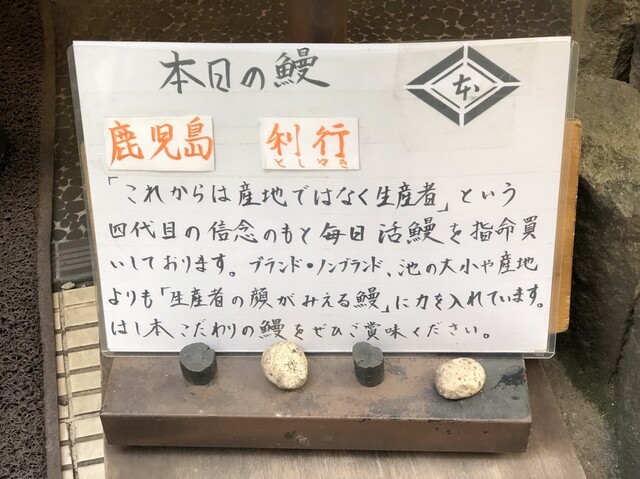 本日の鰻
本
鹿児島 利行
としゆき
「これからは産地ではなく生産者」という
四代目の信念のもと毎日活鰻を指命買
いしております。ブランド・ノンブランド、池の大小や産地
よりも「生産者の顔がみえる鰻」に力を入れています。
はし本こだわりの鰻をぜひご賞味ください。